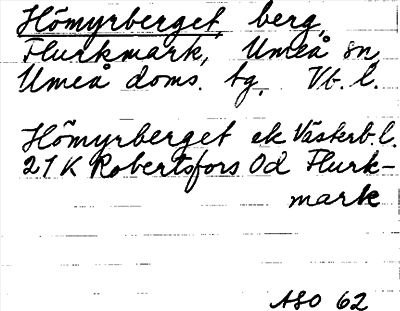 Hömyrberget, berg,
Flurkmark, Umeå sn
Umeå doms. tg, Vb. l.
Hömyrberget ek Västerb. l.
21 K Robertsfors 0d Flurk-
mark
ASO 62